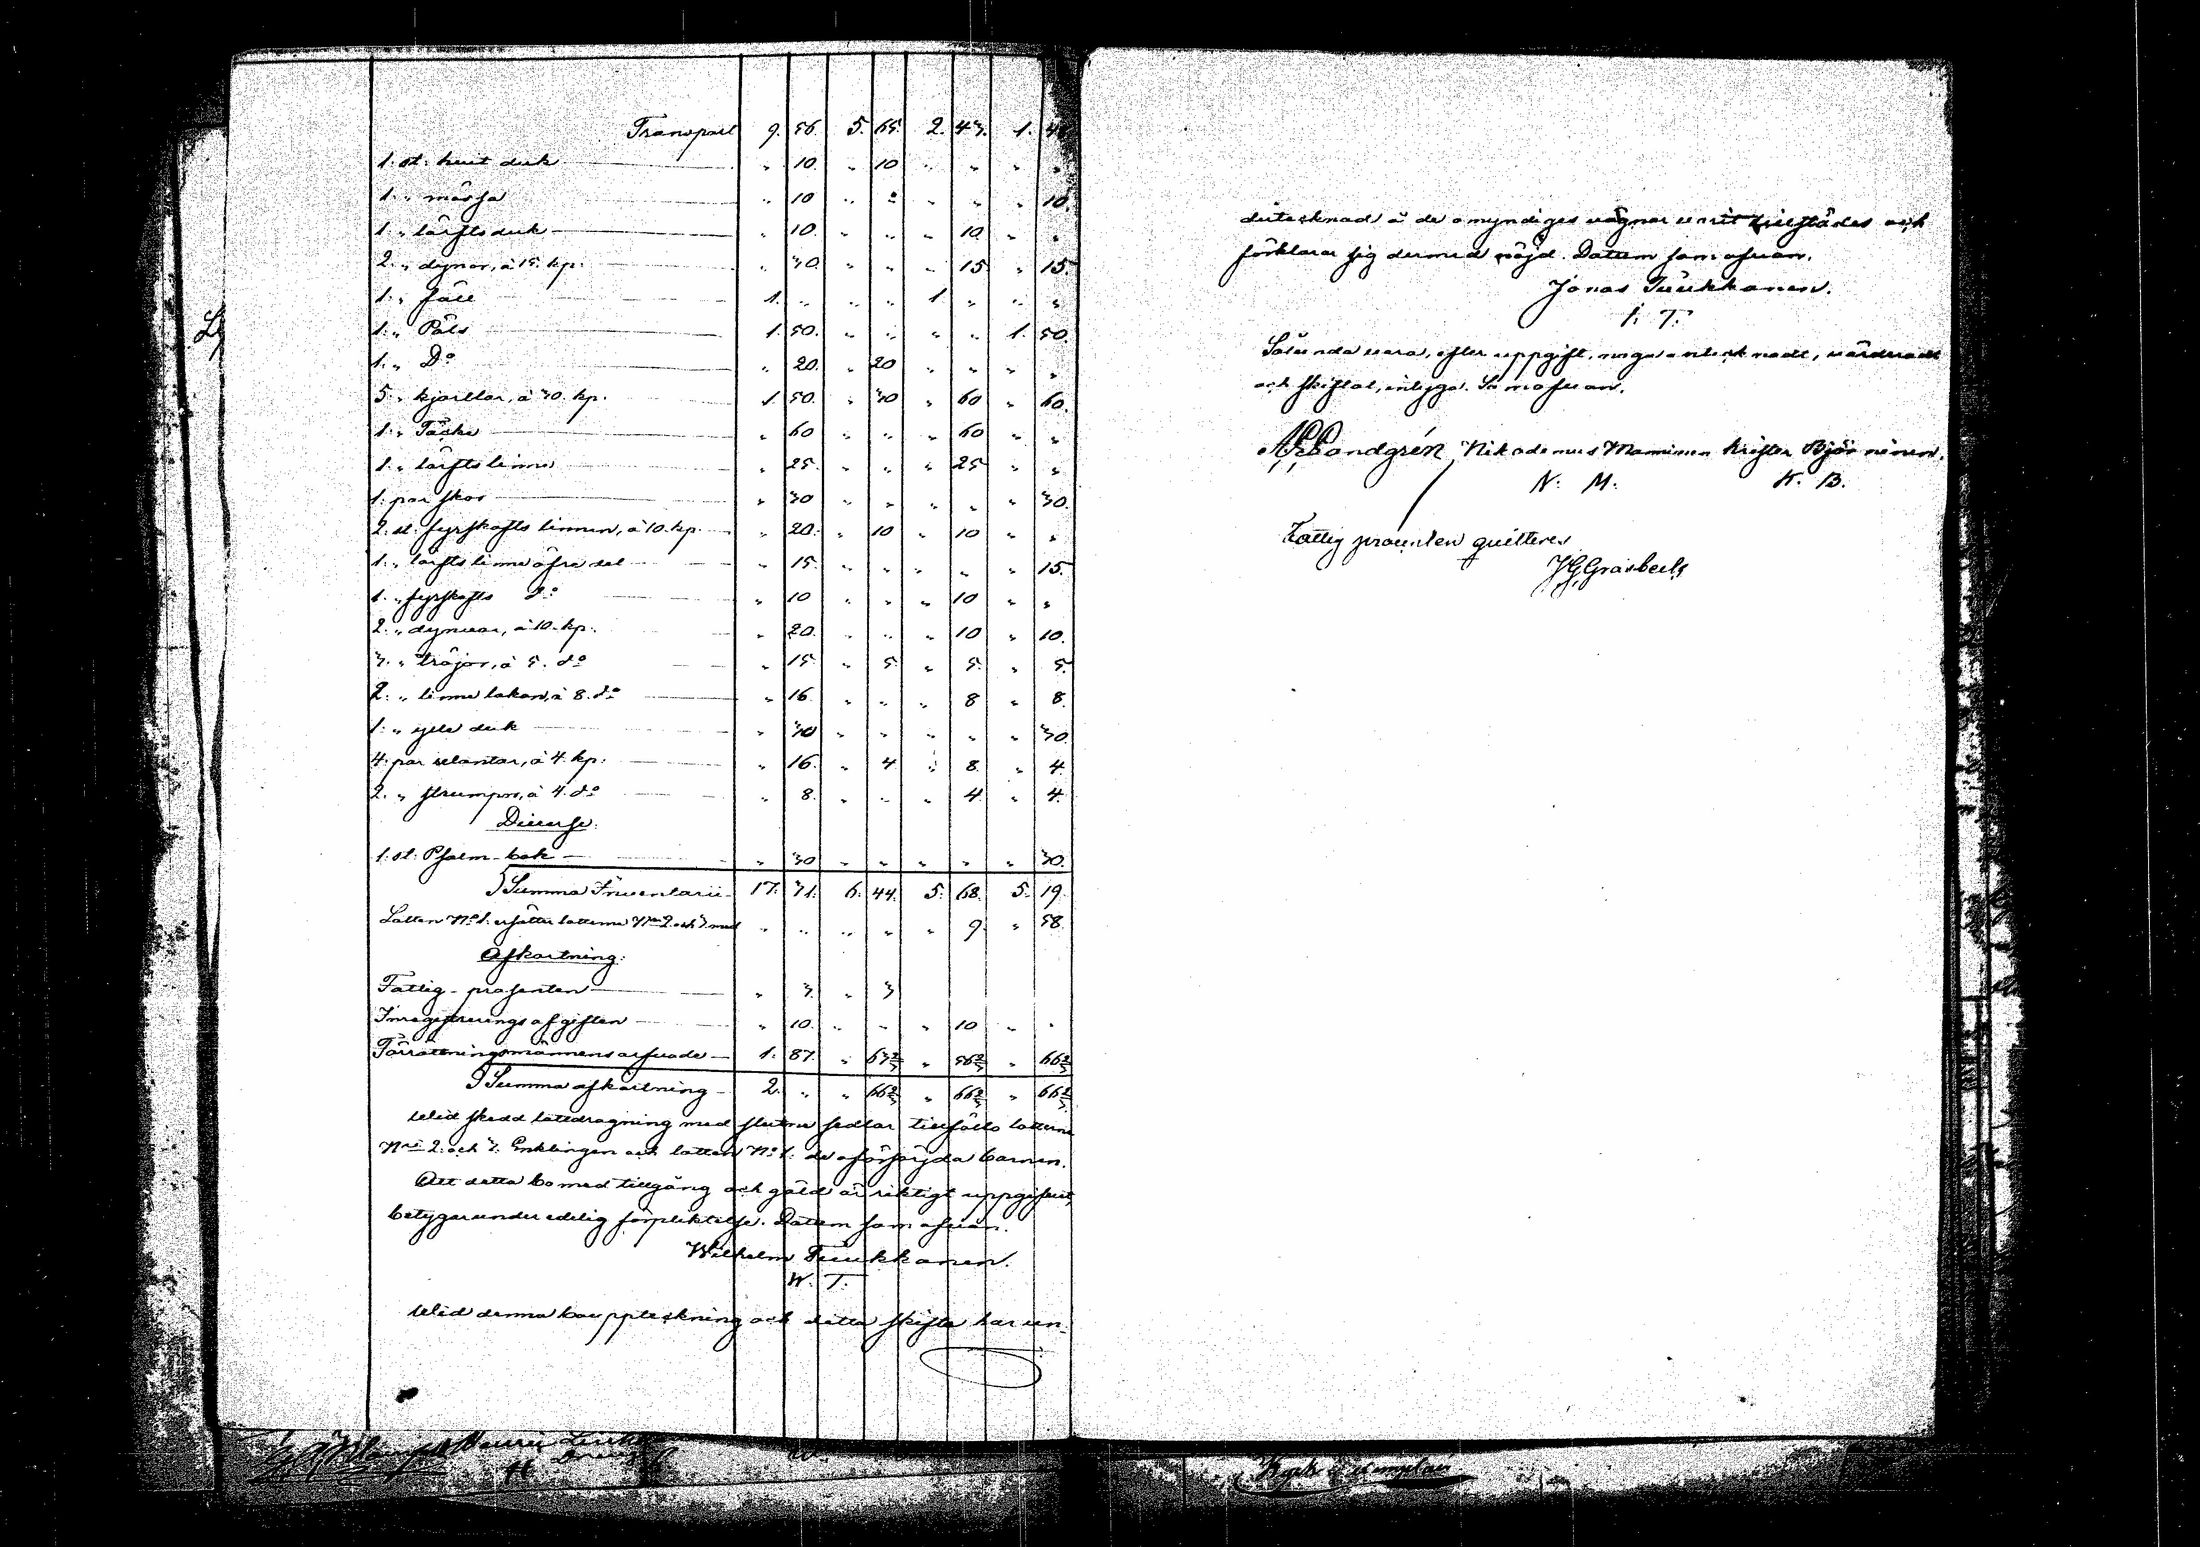 Transport 9. 56. 5. 65. 2. 43. 1. 48
1. st: huit duk „ 10. „ 10 „ „ „ „
1. „ mössa „ 10 „ „ „ „ „ 10
1. „ lärftsduk „ 10. „ „ „ 10 „ „
2. „ dynor, à 15. kp. „ 30. „ „ „ 15 „ 15.
1. „ fäll 1. „ „ „ 1 „ „ „
1. „ Päls 1. 50. „ „ „ „ 1. 50.
1. „ Do „ 20. „ 20 „ „ „ „
5. „ kjortlar, à 30. kp. 1. 50. „ 30 „ 60 „ 60.
1. „ Täcke „ 60 „ „ „ 60 „ „
1. „ lärfts linne „ 25. „ „ „ 25 „ „
1. par skor „ 30 „ „ „ „ „ 30.
2. st. fyrskafts linnen, à 10. kp. „ 20. „ 10 „ 10 „ „
1. „ lärfts linne öfre del „ 15. „ „ „ „ „ 15.
1. „ fyrskafts do „ 10 „ „ „ 10 „ „
2. „ dynvar, à 10. kp. „ 20. „ „ „ 10 „ 10.
3. „ tröjor, à 5. do „ 15 „ 5 „ 5. „ 5.
2. „ linne lakan, à 8. do „ 16 „ „ „ 8 „ 8.
1. „ ylle duk „ 30 „ „ „ „ „ 30.
4. par vantar, à 4. kp. „ 16. „ 4 „ 8. „ 4.
2. „ strumpor, à 4. do „ 8. „ „ „ 4. „ 4.
Diverse.
1. st. Psalm-bok „ 30 „ „ „ „ „ 30.
Summa Inventarii 17. 31. 6. 44. 5. 68. 5. 19.
Lotten No 1. ersätter lotterna Nris 2. och 3. med „ „ „ „ „ 9. „ 58.
Afkortning:
Fattig-prosenten „ 3. „ 3
Inregistrerings afgiften „ 10. „ „ „ 10 „ „
Förrättningsmännens arfvode 1. 87. „ 63⅔ „ 56⅔ „ 66⅔
Summa afkortning 2. „ „ 66⅔ „ 66⅔ „ 66⅔
Wid skedd lottdragning med slutna sedlar tillföllo lotterna
Nris 2. och 3. Enklingen och lotten No 1. de oförsörjda barnen.
Att detta bo med tillgång och gäld är riktigt uppgifvet,
betygar under edelig förpliktelse. Datum som ofvan.
Wilhelm Tiukkanen.
W. T.
Wid denna bouppteckning och detta skifte har un-
dertecknad å de omyndiges vägnar varit tillstädes och
förklarar sig dermed nöjd. Datum som ofvan.
Jonas Tiukkanen.
J. T.
Sålunda vara, efter uppgift, noga antecknadt, värderadt
och skiftat, intyga. Som ofvan.
Landgrén Nikodemus Manninen Krister Björninen.
N. M. K. B.
Fattig procenten quitteres
J G Gråsbeck